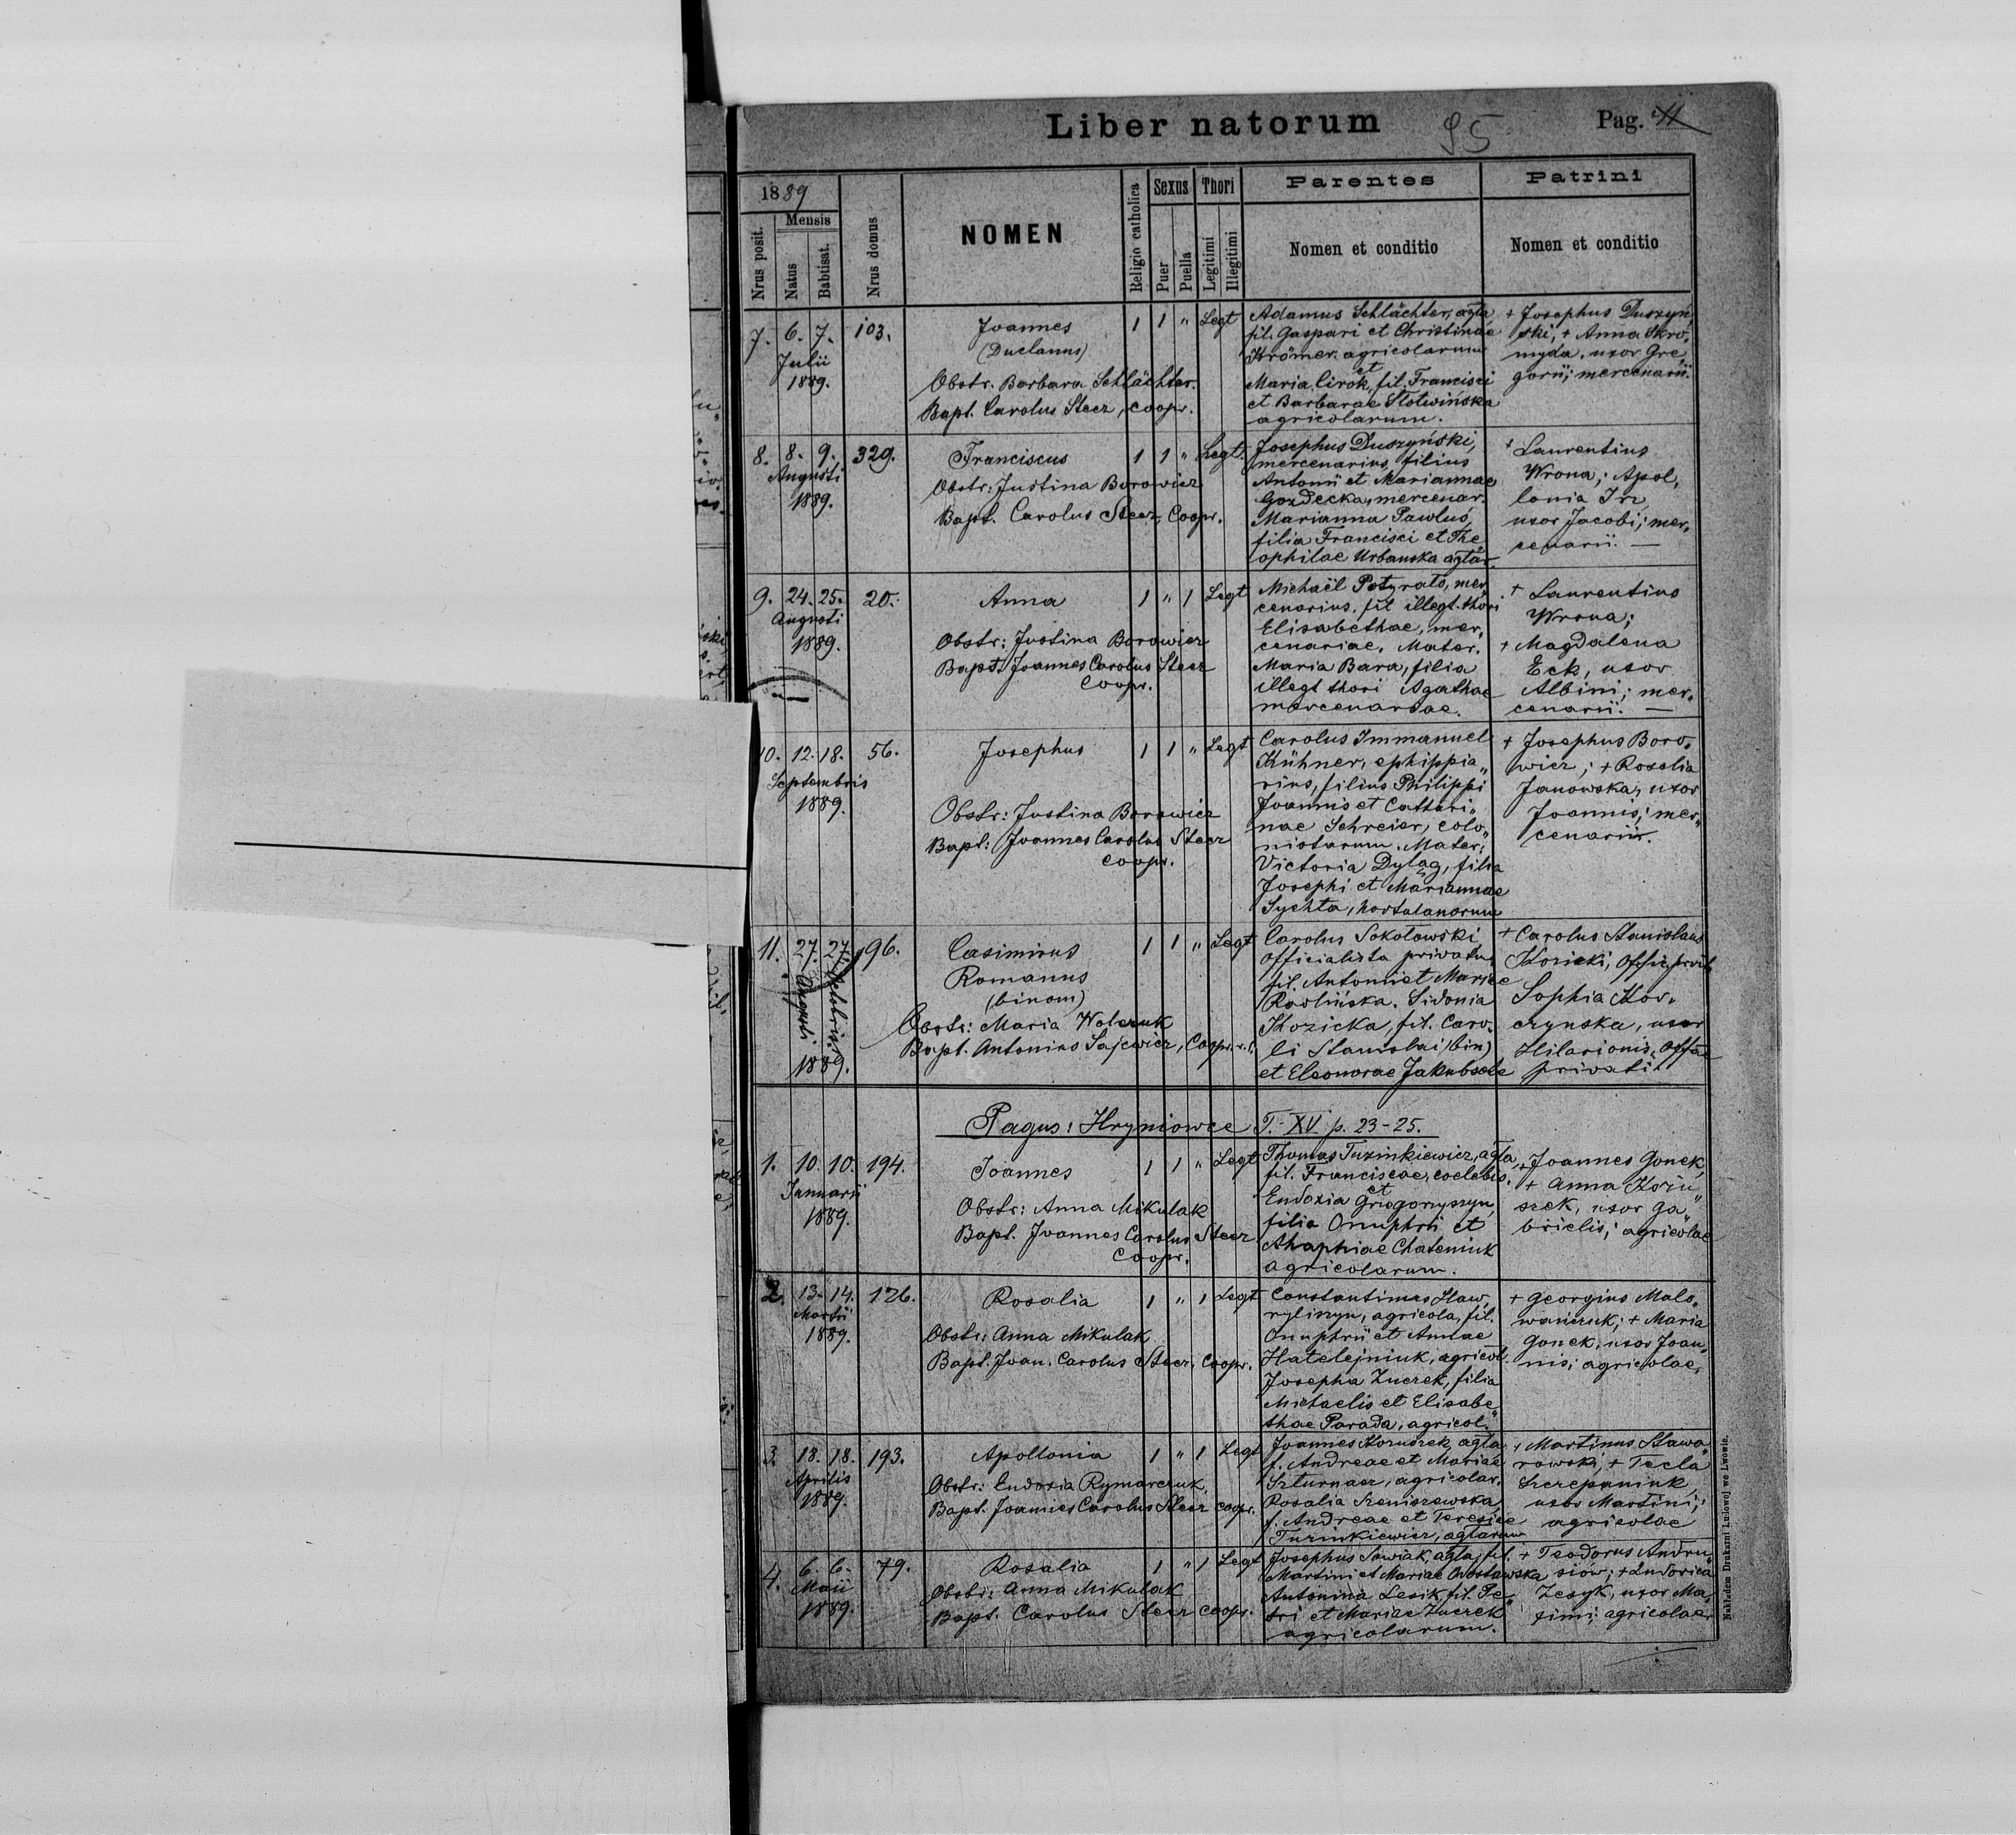 Liber natorum
95
Pag. 11
1889
Nrus posit.
Mensis
Natus
Babtisat.
Nrus domus
NOMEN
Religio catholica
Sexus
Puer
Puella
Thori
Legitimi
Illegitimi
Parentes
Nomen et conditio
Patrini
Nomen et conditio
7. 6. 7. 103.
Julii
1889.
Joannes
(Duclanus)
Obstr. Barbara Schlächter.
Bapt. Carolus Steer, coopr.
1 1 " Legt
Adamus Schlächter, agla,
fil. Gaspari et Christinae
Krömer. agricolarum
et
Maria Cirok, fil. Francisci
et Barbarae Slotwińska
agricolarum.
+ Josephus Duszyń
ski, + Anna Skro„
nyda, uxor Gre„
gorii; mercenarii.
8. 8. 9. 329.
Augusti
1889.
Franciscus
Obstr: Justina Borowicz
Bapt. Carolus Steer, Coopr.
1 1 " Legt.
Josephus Duszyński,
mercenarius, filius
Antonii et Mariannae
Gozdecka, mercenar.
Marianna Pawluś,
filia Francisci et The„
ophilae Urbanska agtar.
+ Laurentius
Wrona; Apol„
lonia Irz,
uxor Jacobi; mer„
cenarii. —
9. 24. 25. 20.
Augusti
1889.
Anna
Obstr: Justina Borowicz
Bapt. Joannes Carolus Steer
Coopr.
1 " 1 Legt
Michaël Potyrało, mer„
cenarius, fil illegt. thori
Elisabethae, mer„
cenariae. Mater.
Maria Bara, filia
illegt thori Agathae
mercenariae.
+ Laurentius
Wrona;
+ Magdalena
Eck, uxor
Albini; mer„
cenarii. —
10. 12. 18. 56.
Septembris
1889.
Josephus
Obstr: Justina Borowicz
Bapt: Joannes Carolus Steer
coopr.
1 1 " Legt
Carolus Immanuel
Kühner, ephippia„
rius, filius Philippi
Joannis et Cathari„
nae Schreier, colo„
nistarum. Mater:
Victoria Dyląg, filia
Josephi et Mariannae
Sychta, hortulanorum
+ Josephus Boro„
wicz; + Rosalia
Janowska, uxor
Joannis; mer„
cenarii.
11. 27. 27. 196.
Augusti
1889.
Casimirus
Romanus
(binom)
Obstr: Maria Wolczuk
Bapt. Antonius Sajewicz, Coopr. r. l.
1 1 " Legt
Carolus Sokołowski
officialista privatus
fil. Antonii et Mariae
Rawlińska. Sidonia
Kozicka, fil. Caro„
li Stanislai (bin)
et Eleonorae Jakubsche
+ Carolus Stanislaus
Kozicki, Offic. privt
Sophia Kor„
czynska, uxor
Hilarionis, Offae
privati.
Pagus: Hryniowce T. XV p. 23-25.
1. 10. 10. 194.
Januarii
1889.
Joannes
Obstr: Anna Mikulak
Bapt. Joannes Carolus Steer
Coopr.
1 1 " Legt
Thomas Tuzinkiewicz, agla,
fil. Franciscae, coelebis.
et
Eudoxia Grzogoryszyn,
filia Onuphrii et
Ahaphiae Chateniuk
agricolarum.
+ Joannes Gonek,
+ Anna Korzu„
szek, uxor Ga„
brielis; agricolae
2. 13. 14. 126.
Martii
1889.
Rosalia
Obstr: Anna Mikulak
Bapt. Joan. Carolus Steer, Coopr.
1 " 1 Legt
Constantinus Haw„
ryliszyn, agricola, fil.
Onuphrii et Annae
Hatelejniuk, agricol.
Josepha Zuczek, filia
Michaelis et Elisabe„
thae Parada, agricol.
+ Georgius Malo„
wańczuk; + Maria
Gonek, uxor Joan„
nis; agricolae,
3. 18. 18. 193.
Aprilis
1889.
Apollonia
Obstr: Eudoxia Rymarczuk.
Bapt. Joannes Carolus Steer coopr.
1 " 1 Legt
Joannes Koruszek, agla
f. Andreae et Mariae
Szturnacz, agricolar.
Rosalia Szeniszewska,
f. Andreae et Teresiae
Tuzinkiewicz, agtarum
+ Martinus Stawa„
rowski, + Tecla
Szczepaniuk
uxor Martini;
agricolae
4. 6. 6. 79.
Maii
1889.
Rosalia
Obstr: Anna Mikulak
Bapt. Carolus Steer coopr.
1 " 1 Legt
Josephus Sowiak, agla, fil.
Martini et Mariae
Antonina Lesik, fil. Pe„
tri et Mariae Zuczek
agricolarum.
+ Teodorus Andru„
siów; + Ludovica
Zesyk, uxor Ma„
ximi; agricolae.
Nakładem Drukarni Ludowej we Lwowie.